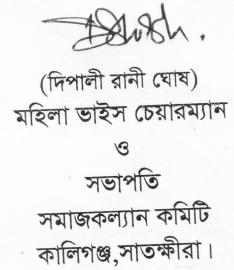 (দিপালী রানী ঘোষ)
মহিলা ভাইস চেয়ারম্যান
ও
সভাপতি
সমাজকল্যান কমিটি
কালিগঞ্জ,সাতক্ষীরা।